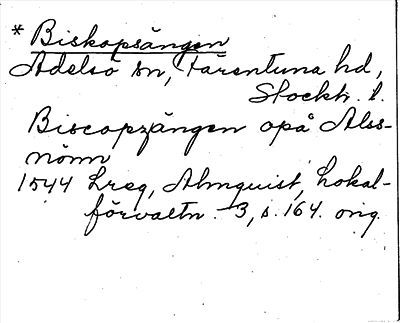 * Biskopsängen
Adelsö sn, Färentuna hd,
Stockh. l.
Biscopzängen opå Alss-
nönn
1544 Lreg, Almquist, Lokal-
förvaltn. 3, s. 164. orig.